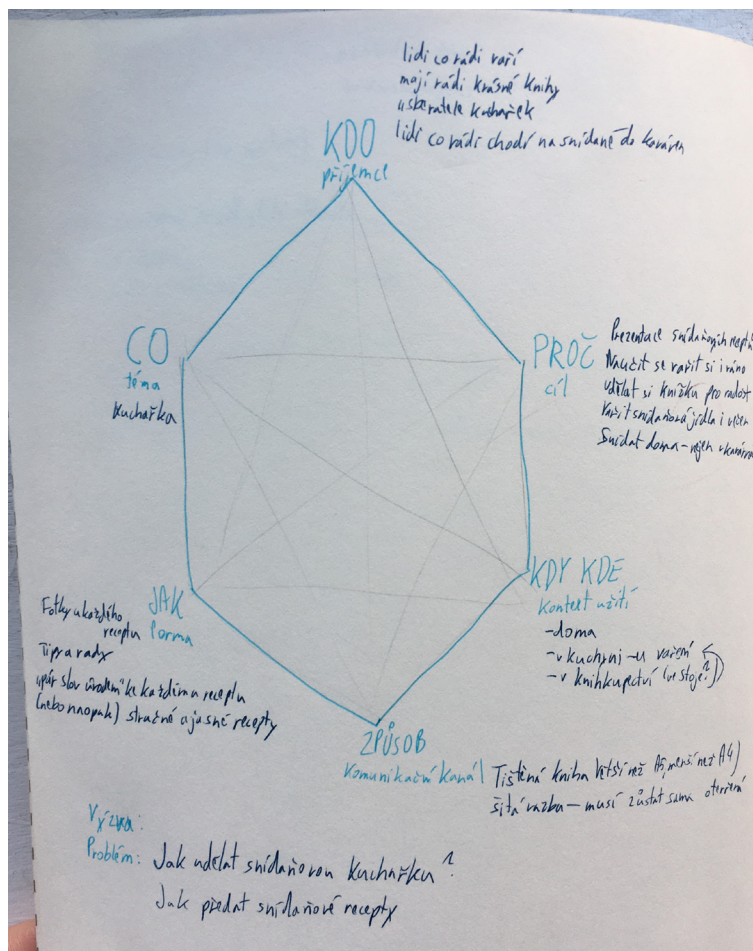 lidi co rádi vaří
mají rádi krásné knihy
sběratele kuchařek
lidi co rádi chodí na snídaně do kaváren
KDO
příjemce
CO
téma
kuchařka
PROČ
cíl
Prezentace snídaňových receptů
Naučit se vařit si i ráno
udělat si knížku pro radost
Vařit snídaňová jídla i večer
Snídat doma – nejen v kavárně
KDY KDE
kontext užití
-doma
-v kuchyni -u vaření
-v knihkupectví (ve stoje?)
JAK
forma
Fotky u každého
receptu
Tipy a rady
"pár slov úvodem" ke každému receptu
(nebo naopak) stručné a jasné recepty
ZPŮSOB
komunikační kanál
Tištěná kniha větší než A5, menší než A4)
šitá vazba – musí zůstat sama otevřená
Výzva:
Problém: Jak udělat snídaňovou kuchařku?
Jak předat snídaňové recepty